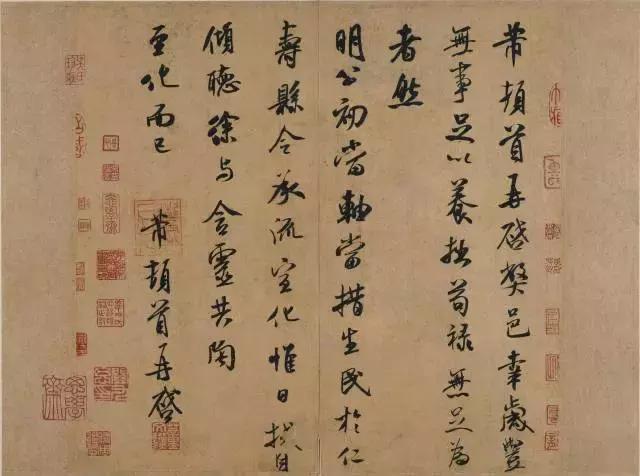 芾頓首再啓弊邑幸歲豐
無事足以養拙苟祿無足為
者然
明公初當軸當措生民於仁
壽縣令承流宣化惟日拭目
傾聽徐与含靈共陶
至化而已　芾頓首再啓